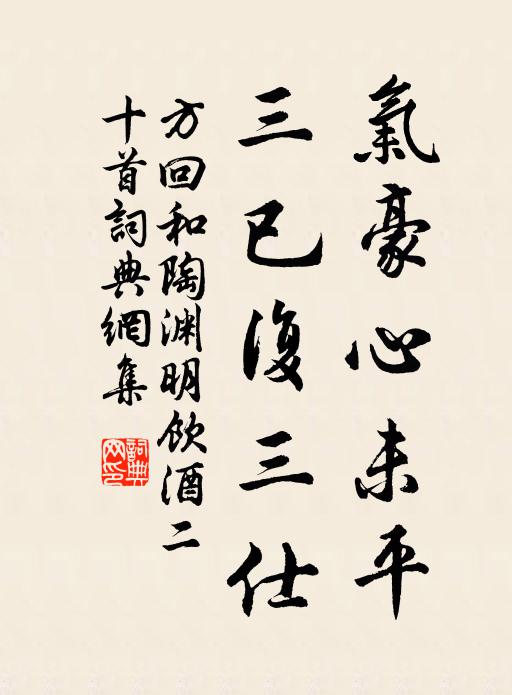 氣豪心未平
三已復三仕
方回和陶渊明飲酒二
十首詞典網集
詞典網印